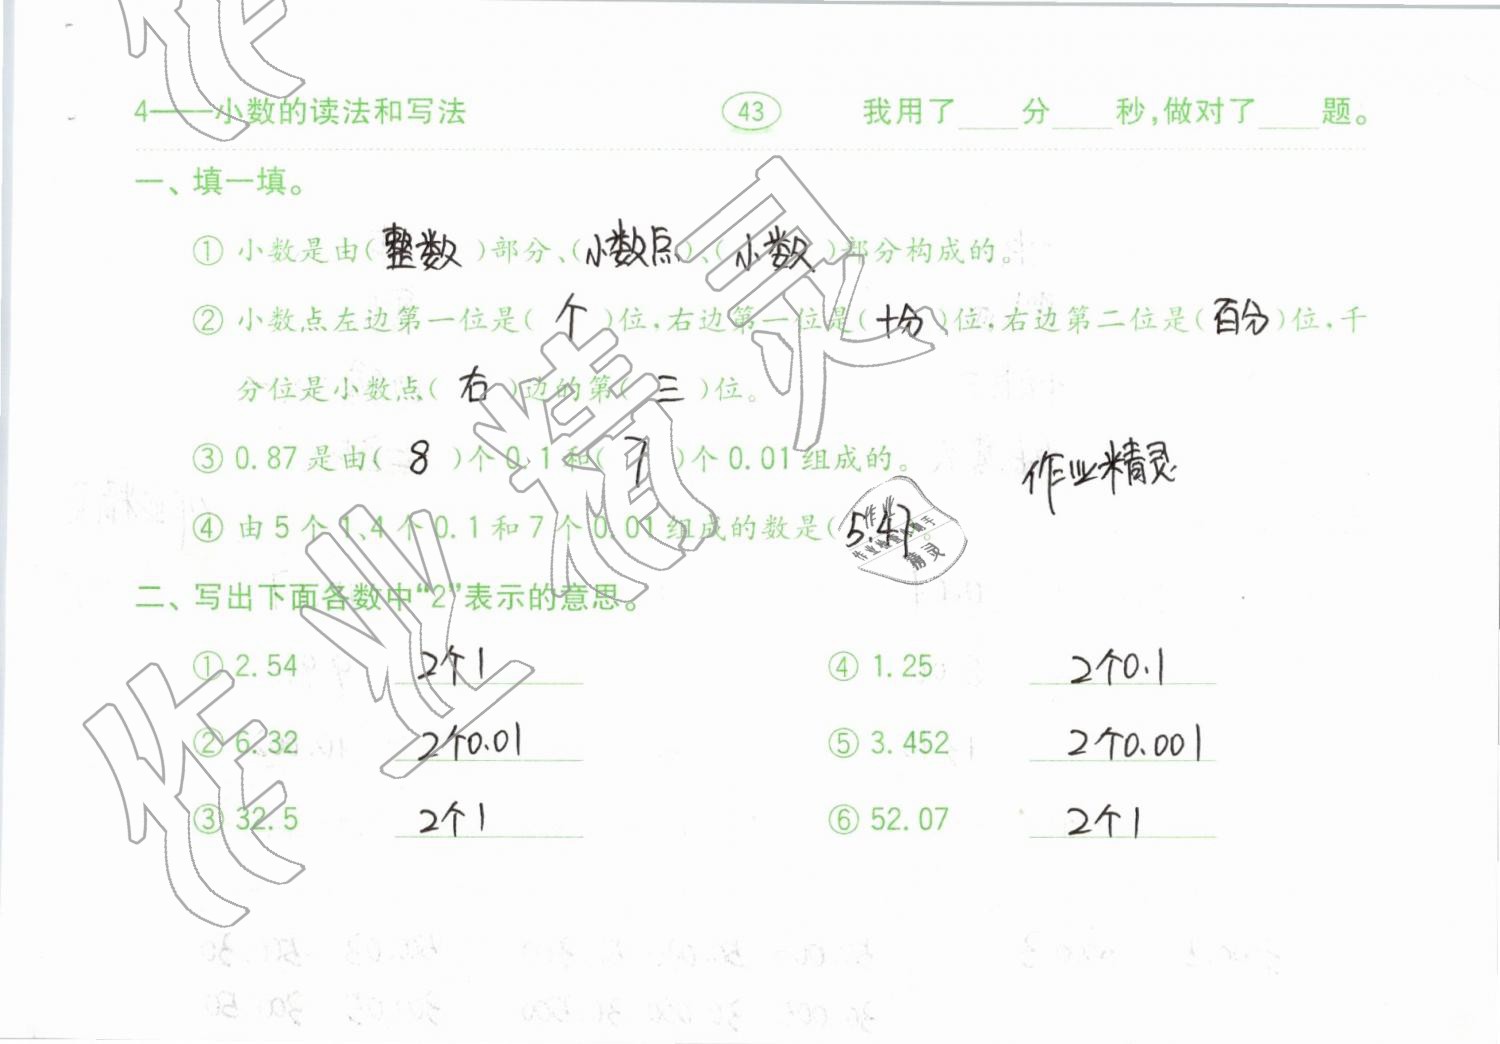 4——小数的读法和写法 43 我用了____分____秒,做对了____题。
一、填一填。
① 小数是由( 整数 )部分、( 小数点 )、( 小数 )部分构成的。
② 小数点左边第一位是( 个 )位,右边第一位是( 十分 )位,右边第二位是( 百分 )位,千
分位是小数点( 右 )边的第( 三 )位。
③ 0.87是由( 8 )个0.1和( 7 )个0.01组成的。
作业精灵
④ 由5个1、4个0.1和7个0.01组成的数是( 5.47 )。
二、写出下面各数中“2”表示的意思。
① 2.54 2个1 ④ 1.25 2个0.1
② 6.32 2个0.01 ⑤ 3.452 2个0.001
③ 32.5 2个1 ⑥ 52.07 2个1
作业精灵